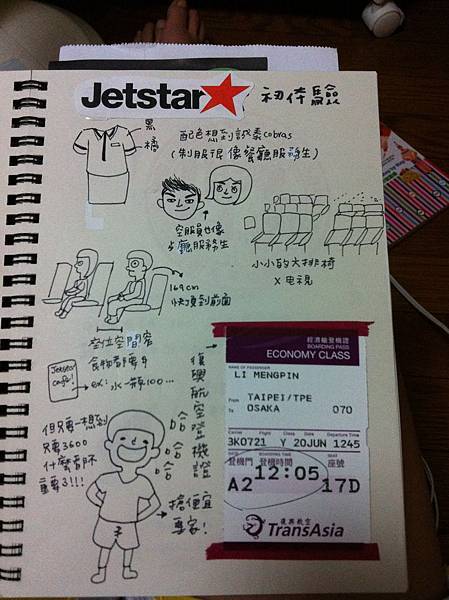 Jetstar★ 初体驗
黑
橘
配色想到設素cobras
(制服很像餐廳服務生)
空服員也像
餐廳服務生
小小的大排椅
X 电視
169cm
快頂到前面
座位空間窄
食物都要$
ex: 水一瓶100...
Jetstar
cafe!
但只要一想到
只要3600
什麼都不
重要了!!!
哈
哈
哈
搶便宜
專家!
復興航空登機證
經濟艙登機證
BOARDING PASS
ECONOMY CLASS
NAME OF PASSENGER
LI MENGPIN
From TAIPEI/TPE
To OSAKA 070
Carrier Flight Class Date Departure Time
3K0721 Y 20JUN 1245
GATE BOARDING TIME SEAT
登機門 登機時間 座號
A2 12:05 17D
復興航空
TransAsia